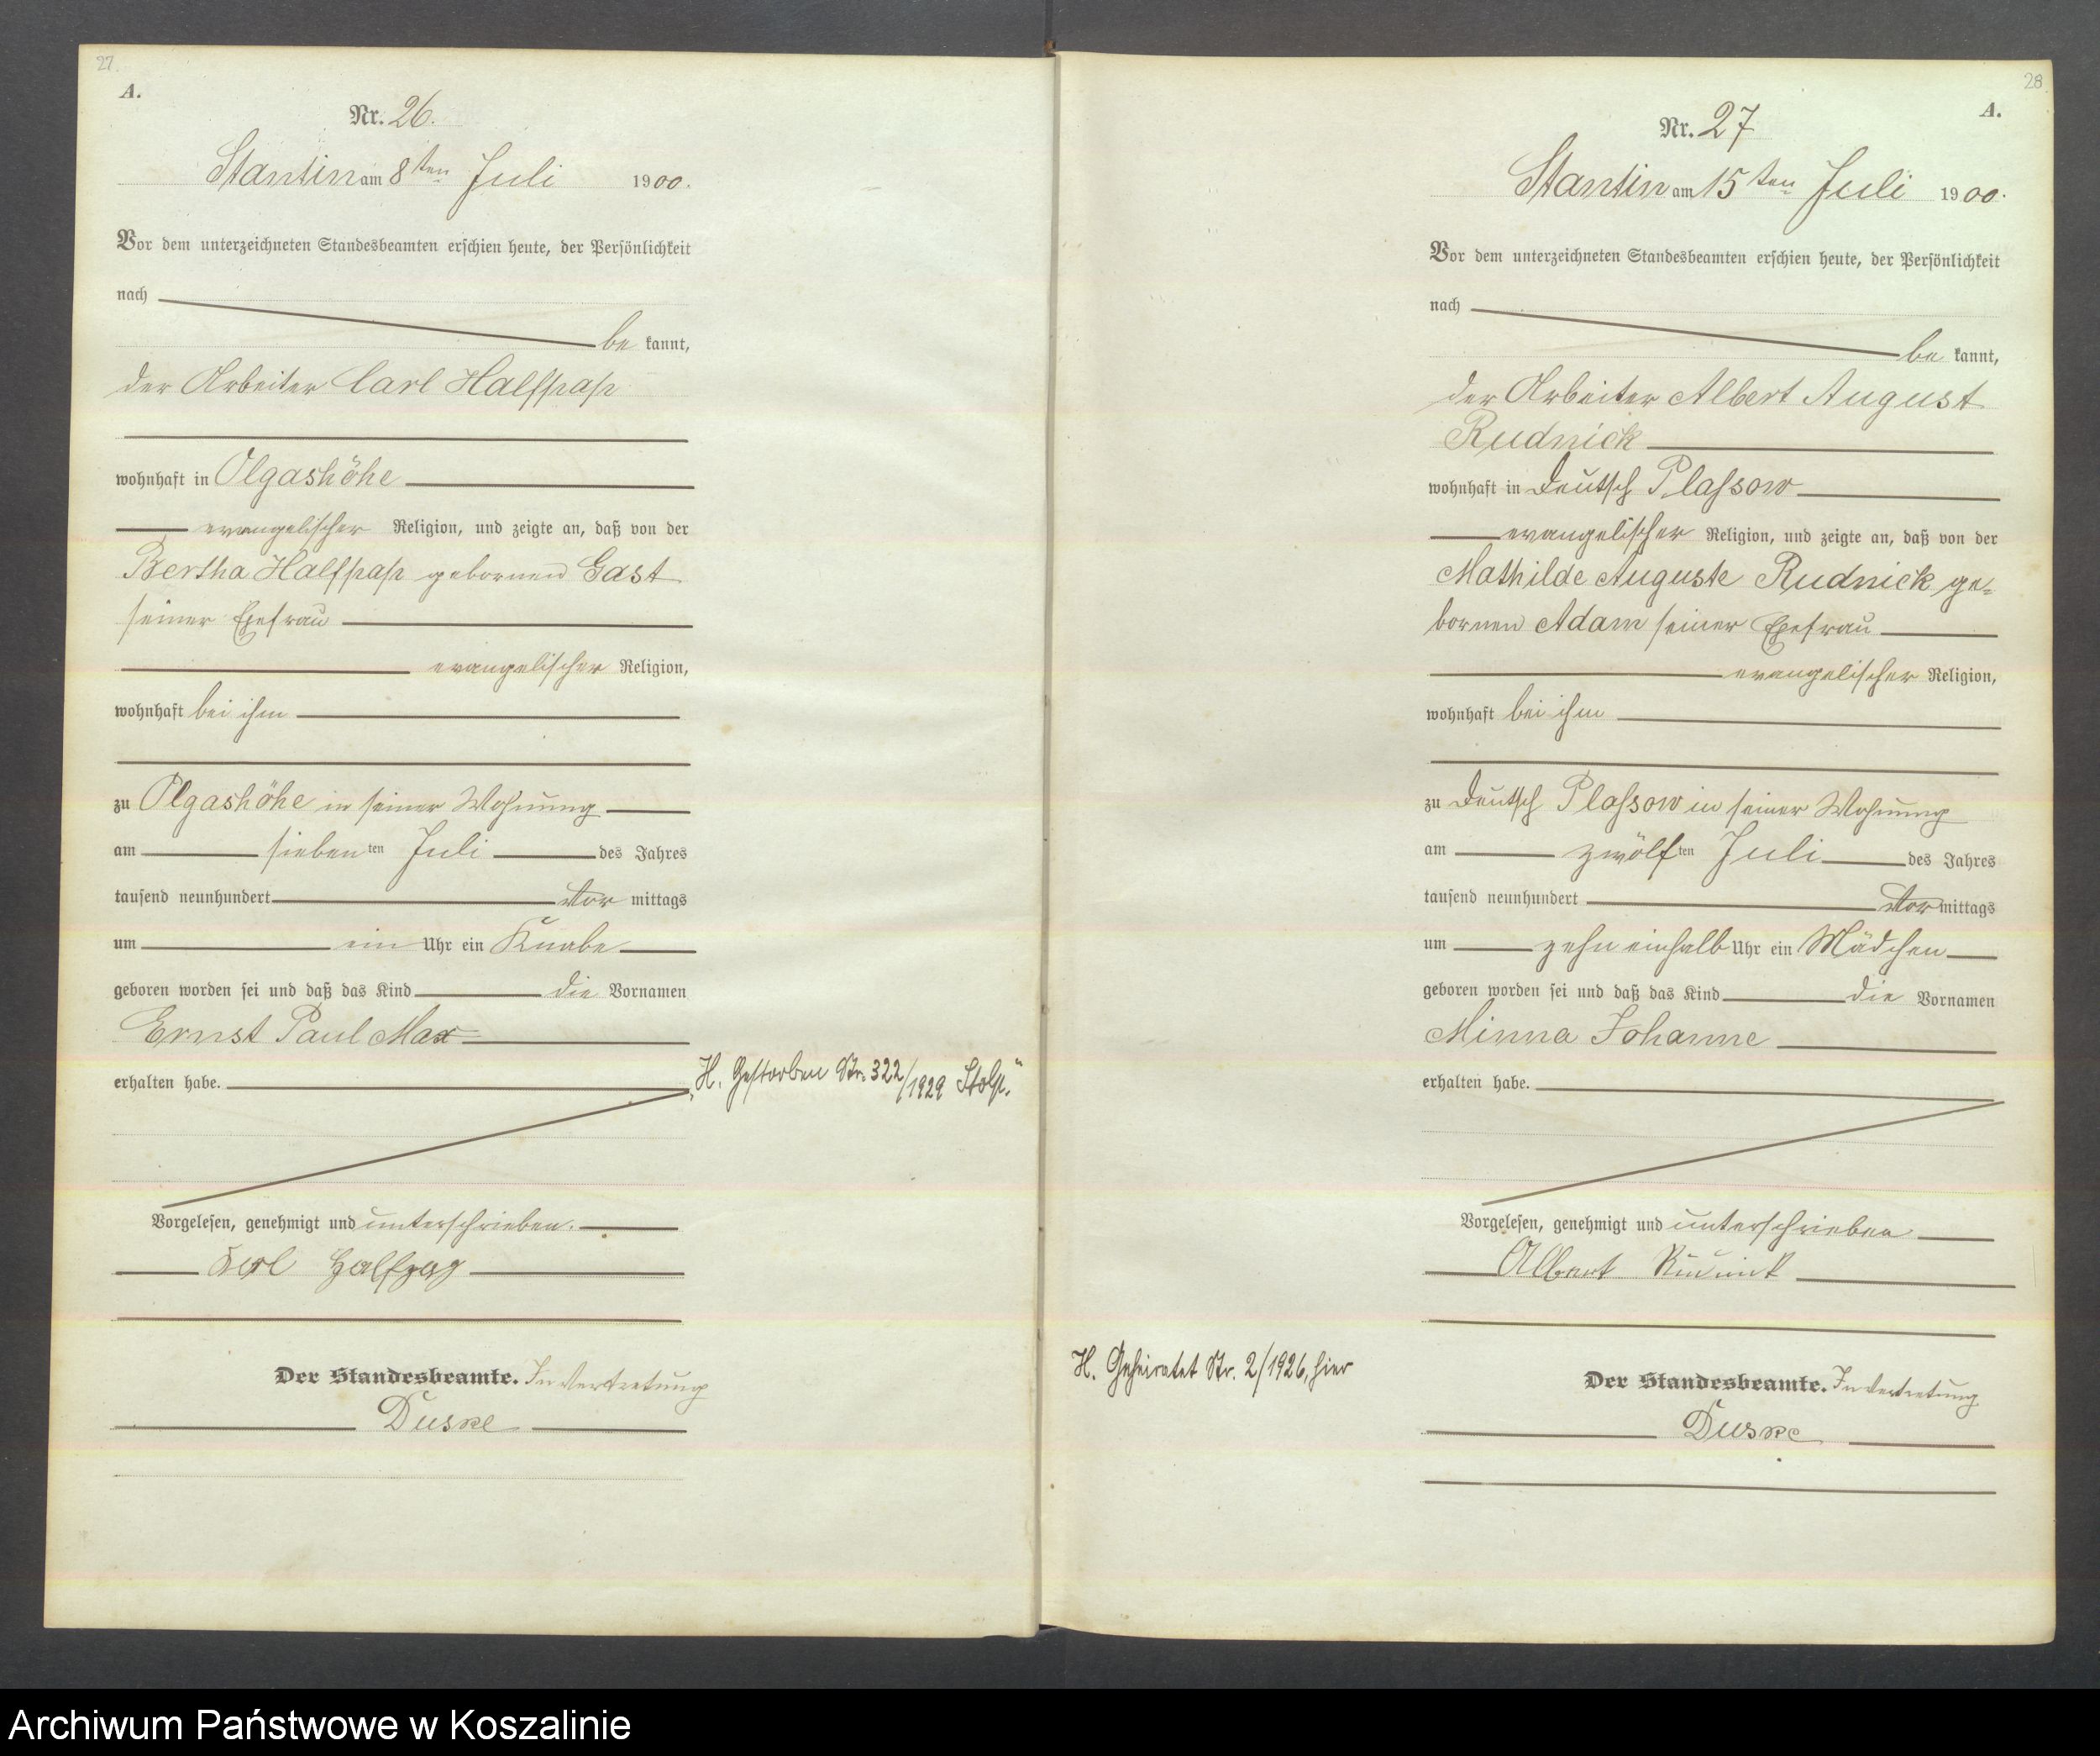 27.
A.
Nr. 26.
Stantin am 8ten Juli 1900.
Vor dem unterzeichneten Standesbeamten erschien heute, der Persönlichkeit
nach
be kannt,
der Arbeiter Carl Halfpap
wohnhaft in Olgashöhe
evangelischer Religion, und zeigte an, daß von der
Bertha Halfpap gebornen Gast
seiner Ehefrau
evangelischer Religion,
wohnhaft bei ihm
zu Olgashöhe in seiner Wohnung
am siebenten Juli des Jahres
tausend neunhundert Vor mittags
um ein Uhr ein Knabe
geboren worden sei und daß das Kind die Vornamen
Ernst Paul Max
erhalten habe.
„H. Gestorben Nr. 322/1929 Stolp.“
Vorgelesen, genehmigt und unterschrieben.
Karl Halfpap
Der Standesbeamte. In Vertretung
Duske
28
A.
Nr. 27
Stantin am 15ten Juli 1900.
Vor dem unterzeichneten Standesbeamten erschien heute, der Persönlichkeit
nach
be kannt,
der Arbeiter Albert August
Rudnick
wohnhaft in Deutsch Plassow
evangelischer Religion, und zeigte an, daß von der
Mathilde Auguste Rudnick ge=
bornen Adam seiner Ehefrau
evangelischer Religion,
wohnhaft bei ihm
zu Deutsch Plassow in seiner Wohnung
am zwölften Juli des Jahres
tausend neunhundert Vor mittags
um zehn einhalb Uhr ein Mädchen
geboren worden sei und daß das Kind die Vornamen
Minna Johanne
erhalten habe.
Vorgelesen, genehmigt und unterschrieben
Albert Rudnick
H. Geheiratet Nr. 2/1926, hier
Der Standesbeamte. In Vertretung
Duske
Archiwum Państwowe w Koszalinie